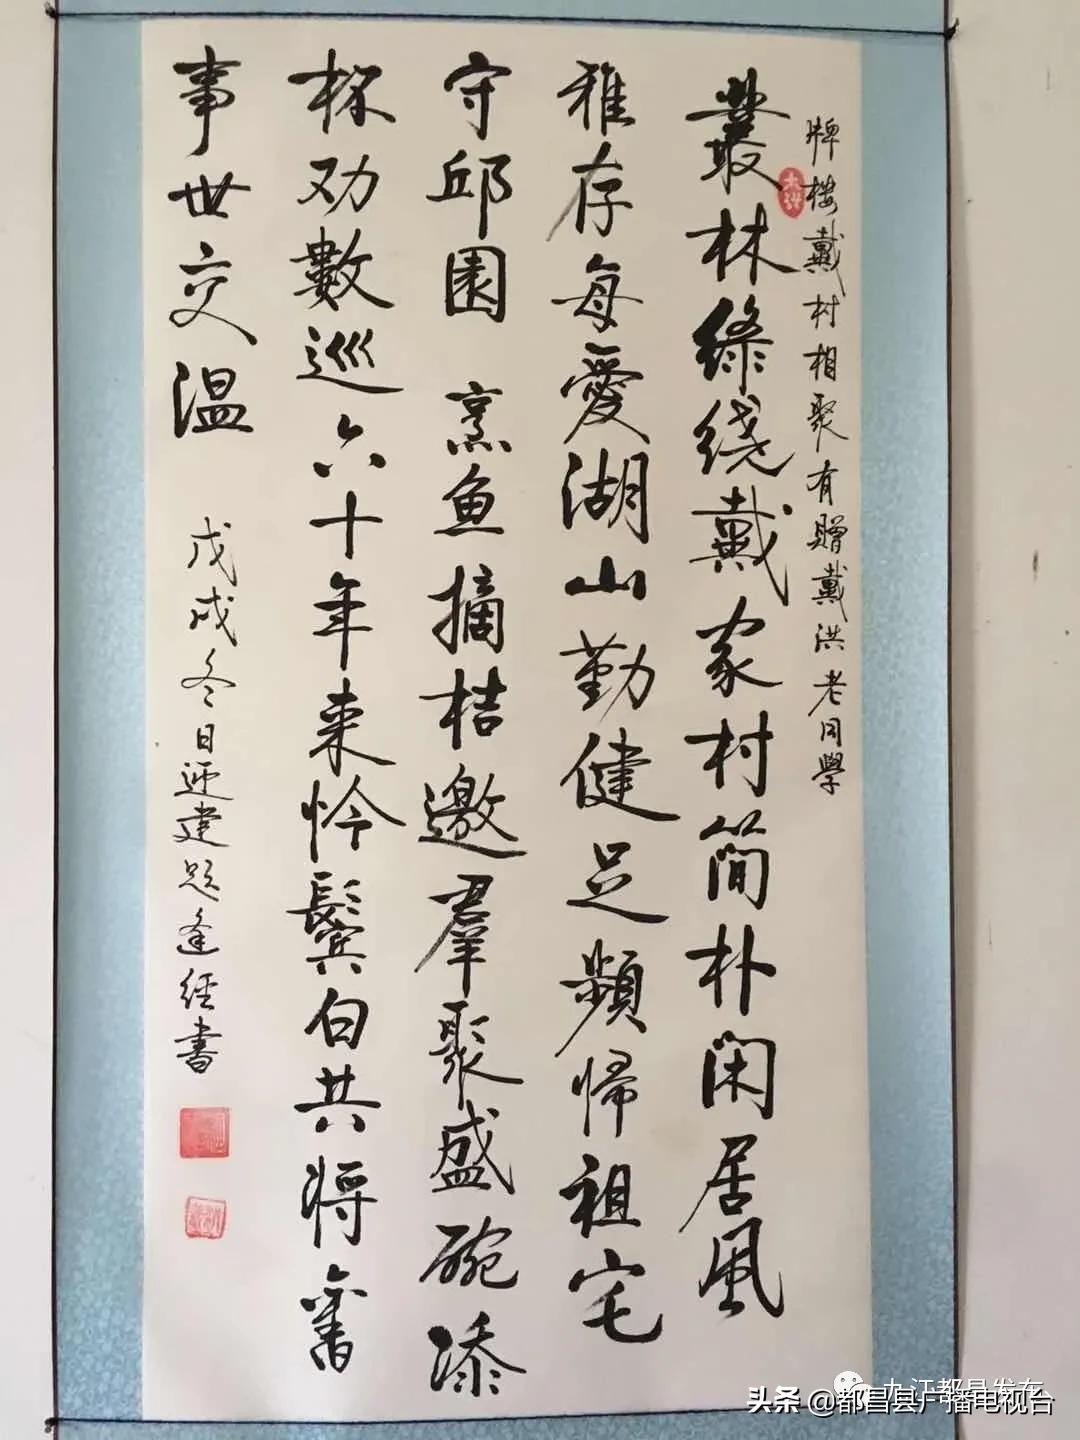 牌楼戴村相聚有赠戴洪老同學
叢林綠绕戴家村简朴闲居風
雅存每愛湖山勤健足頻帰祖宅
守邱園 烹鱼摘桔邀羣聚盛碗添
杯劝數巡六十年来怜鬓白共将舊
事世交温
戊戌冬日迎建题逢经書
九江都昌发布
头条 @都昌县广播电视台